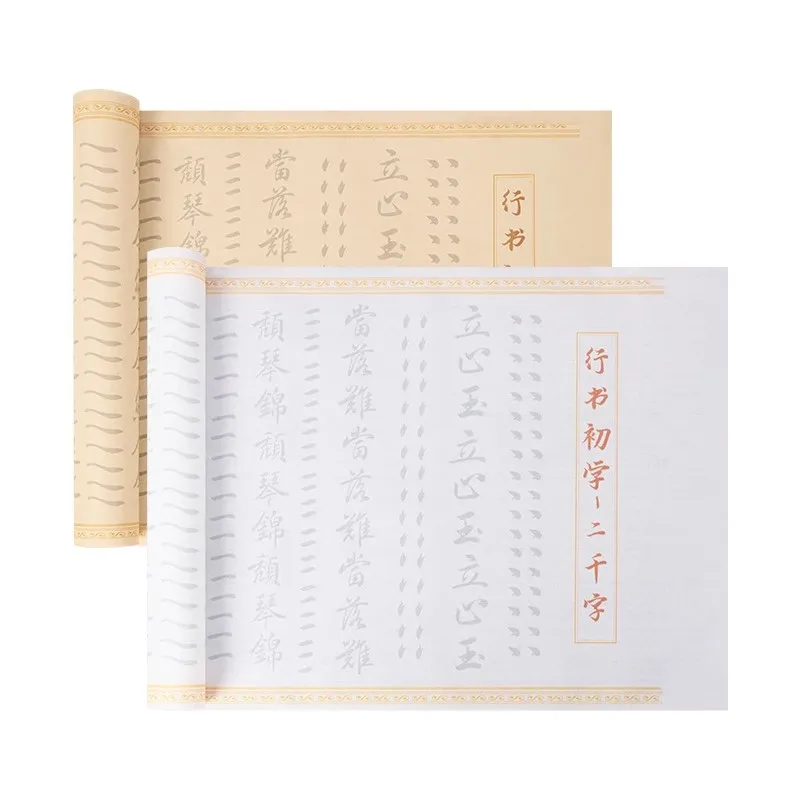 行书
立心玉
當落難
頹琴錦
行书初学~二千字
立心玉立心玉立心玉
當落難當落難當落難
頹琴錦頹琴錦頹琴錦